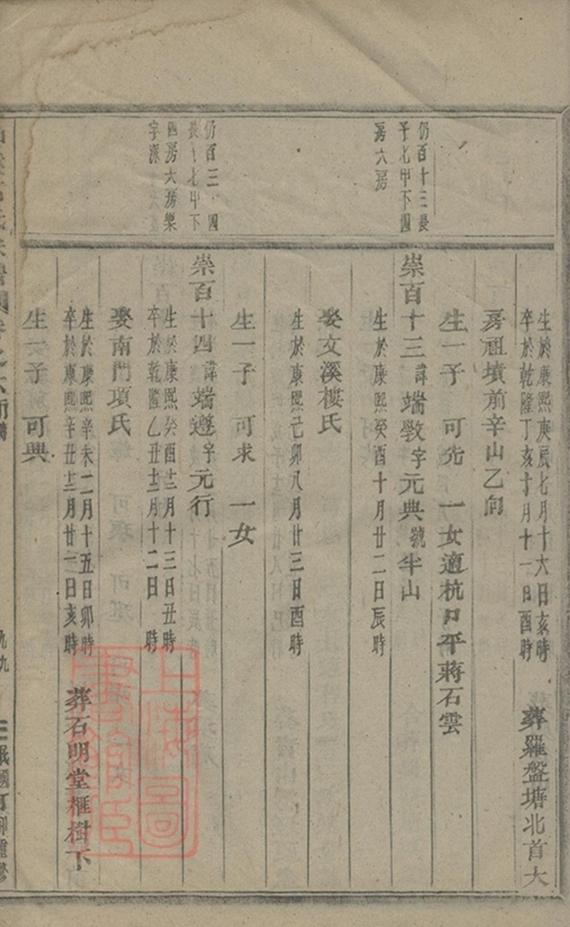 仍百十三長
子七甲下四
房六房
仍百三
四房六房樂
生於康熙庚辰七月十六日亥時
卒於乾隆丁亥十月十一日酉時
葬羅盤塘北首大
房祖墳前辛山乙向
生一子 可先 一女適杭口平蔣石雲
崇百十三諱端斆字元典號半山
生於康熙癸酉十月廿二日辰時
娶文溪樓氏
生於康熙己卯八月廿三日酉時
生一子 可求 一女
崇百十四諱端遵字元行
生於康熙癸酉十二月十三日丑時
卒於乾隆乙丑十二月十二日 時
娶南門項氏
生於康熙辛未二月十五日卯時
卒於康熙辛丑十二月廿一日亥時
葬石明堂榧樹下
生一子 可興
上海圖書館藏